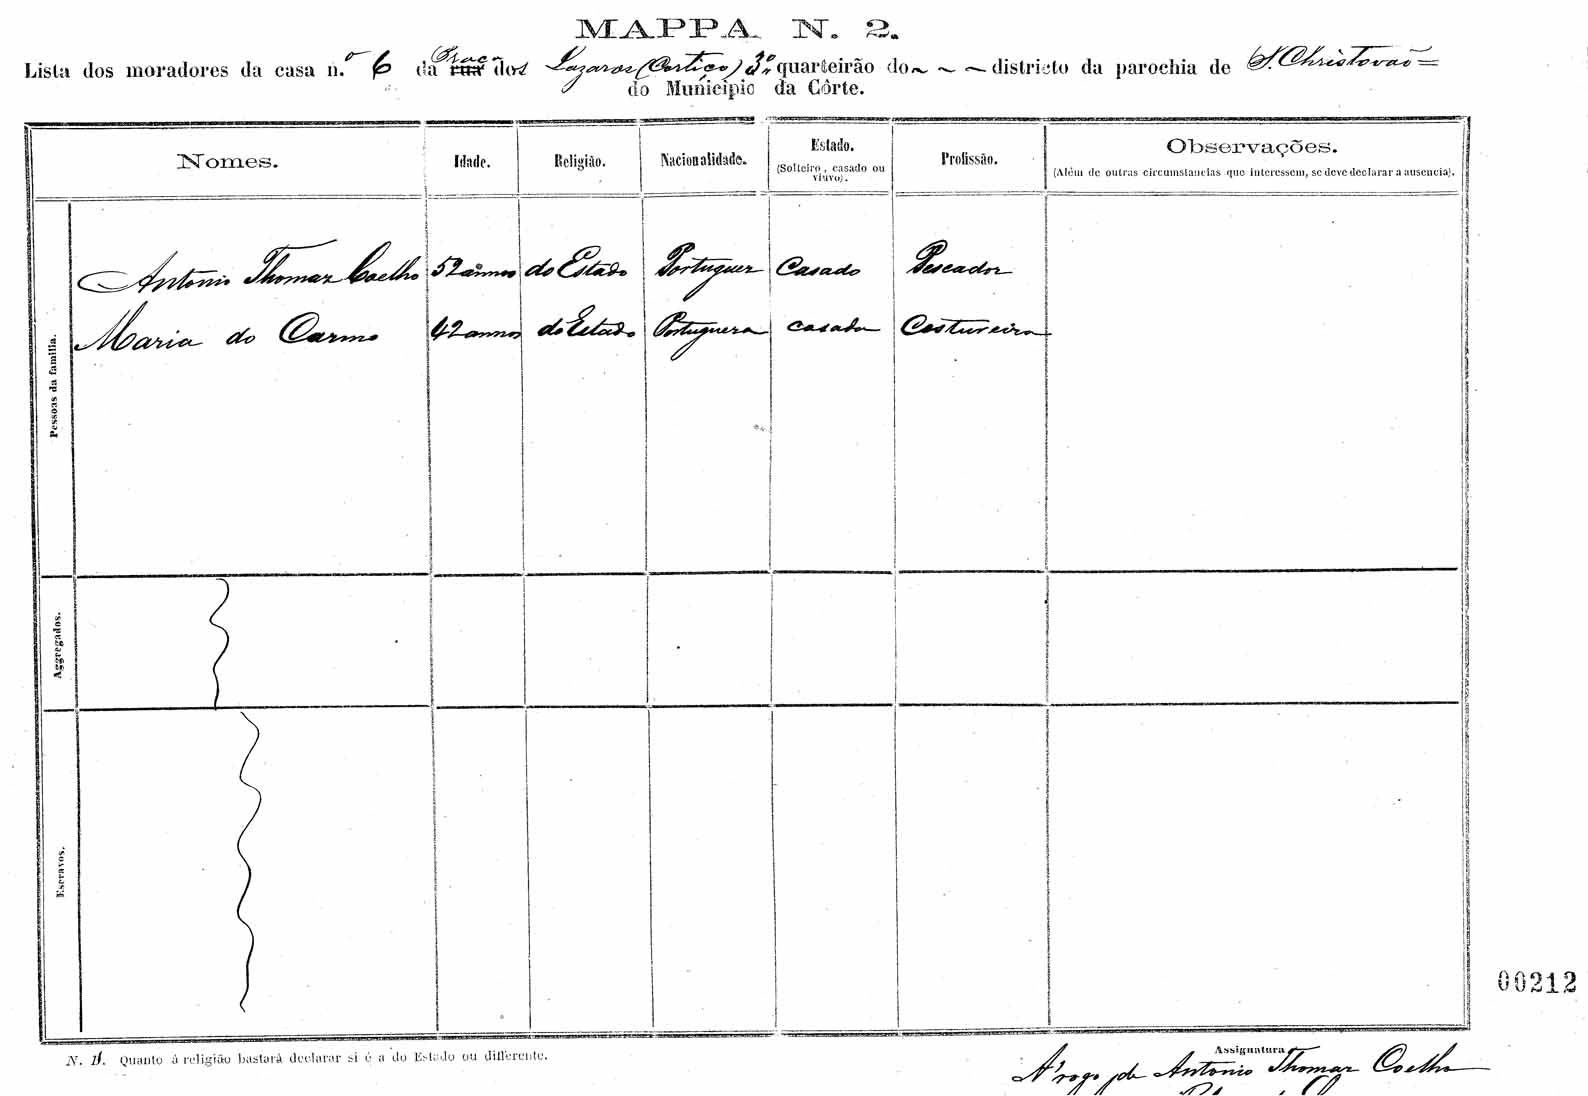 MAPPA N. 2.
Lista dos moradores da casa n.º 6 da Praça rua dos Lazaros (Cortiço) 3º quarteirão do ~ ~ ~ districto da parochia de S. Christovaõ =
do Municipio da Côrte.
Nomes. Idade. Religião. Nacionalidade. Estado. (Solteiro, casado ou viuvo). Profissão. Observações. (Além de outras circumstancias que interessem, se deve declarar a ausencia).
Pessoas da familia.
Antonio Thomaz Coelho 52 annos do Estado Portuguez Casado Pescador
Maria do Carmo 42 annos do Estado Portugueza casada Costureira
Aggregados.
Escravos.
00212
N. B. Quanto á religião bastará declarar si é a do Estado ou differente.
Assignatura
A'rogo de Antonio Thomaz Coelho